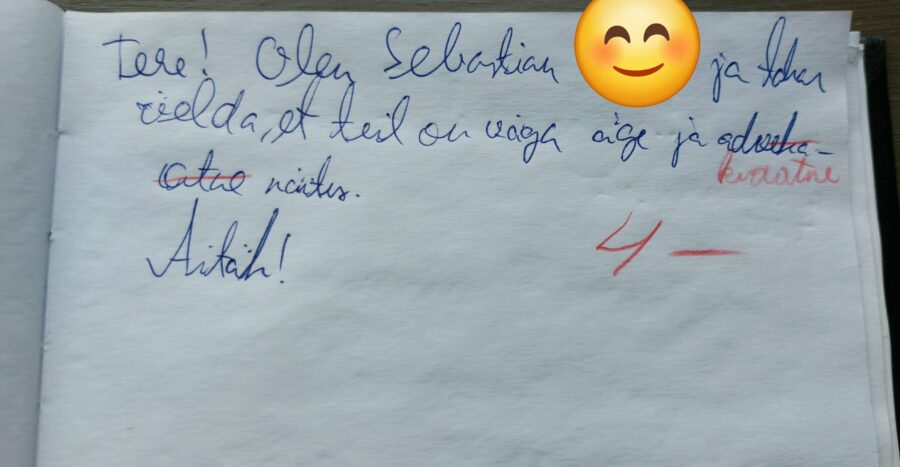 Tere! Olen Sebastian ja tahan
öelda, et teil on väga äge ja advoka-
kvaatne
atne näitus.
Aitäh!
4 –